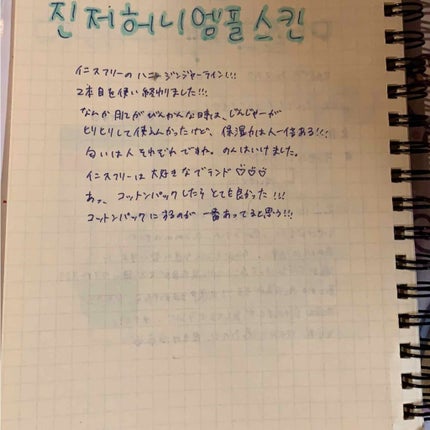 진저허니엠플스킨
イニスフリーの ハニージンジャーライン!!!
2本目を使い終わりました!!!
なんか肌がびんかんな日時は、じんじゃーが
ヒリヒリして使えんかったけど、保湿力は人一倍ある!!!
匂いは人それぞれですね。のんはいけました。
イニスフリーは大好きなブランド
あっ、コットンパックしたらとても良かった!!!
コットンパックにするのが 一番あってると思う!!